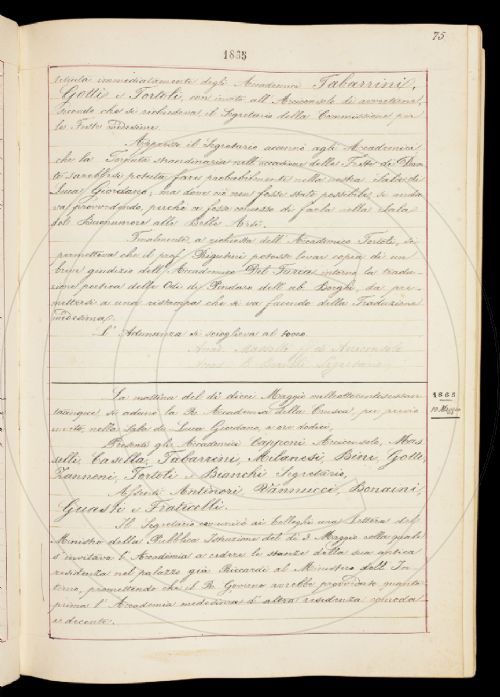 75
1865
immediatamente dagli Accademici Tabarrini,
Gotti e Tortoli, con invito all'Arciconsolo di avvertirne,
secondo che si richiedeva il Segretario della Commissione per
le Feste medesime.
Appresso il Segretario accennò agli Accademici
che la Tornata straordinaria nell'occasione delle Feste di Dan-
te sarebbesi potuta fare probabilmente nella nostra Sala di
Luca Giordano, ma dove ciò non fosse stato possibile si anda-
va provvedendo, perchè ci fosse concesso di farla nella Sala
del Buonumore alle Belle Arti.
Finalmente a richiesta dell'Accademico Tortoli, si
permetteva che il prof. Bigstrini potesse levar copia di un
breve giudizio dell'Accademico Del Furia intorno la tradu-
zione poetica delle Odi di Pindaro dell'ab. Borghi, da pre-
mettersi a una ristampa che si va facendo della Traduzione
medesima.
L'Adunanza si scioglieva al tocco.
Arciconsolo
Segretario
La mattina del dì dieci Maggio milleottocentosessan-
tacinque si adunò la R. Accademia della Crusca, per previo
invito, nella Sala di Luca Giordano, a ore dodici.
1865
10 Maggio
Presenti gli Accademici Capponi Arciconsolo, Mas-
selli, Casella, Tabarrini, Milanesi, Bini, Gotti,
Zannoni, Tortoli e Bianchi Segretario,
Assenti Antinori Vannucci, Bonaini,
Guasti e Fraticelli.
Il Segretario comunicò ai Colleghi una Lettera del
Ministro della Pubblica Istruzione del dì 3 Maggio colla quale
s'invitava l'Accademia a cedere le stanze della sua antica
residenza nel palazzo già Riccardi al Ministero dell'In-
terno, promettendo che il R. Governo avrebbe provveduto quanto
prima l'Accademia medesima d'altra residenza comoda
e decente.